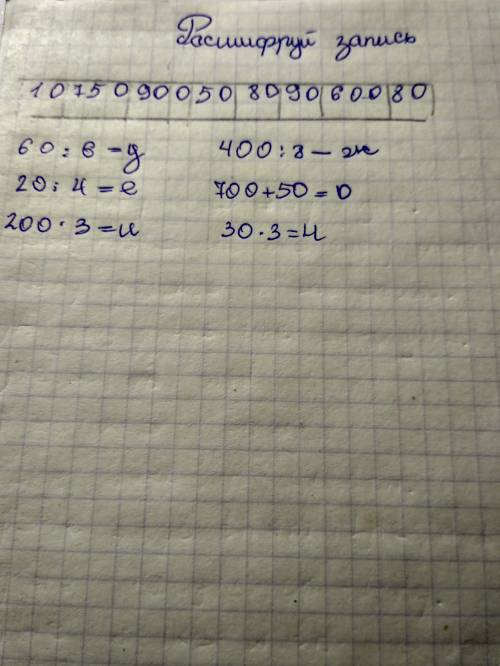 Расшифруй запись
10 750 900 50 80 90 600 80
60 : 6 = д 400 : 8 – ж
20 : 4 = е 700 + 50 = о
200 · 3 = и 30 · 3 = н